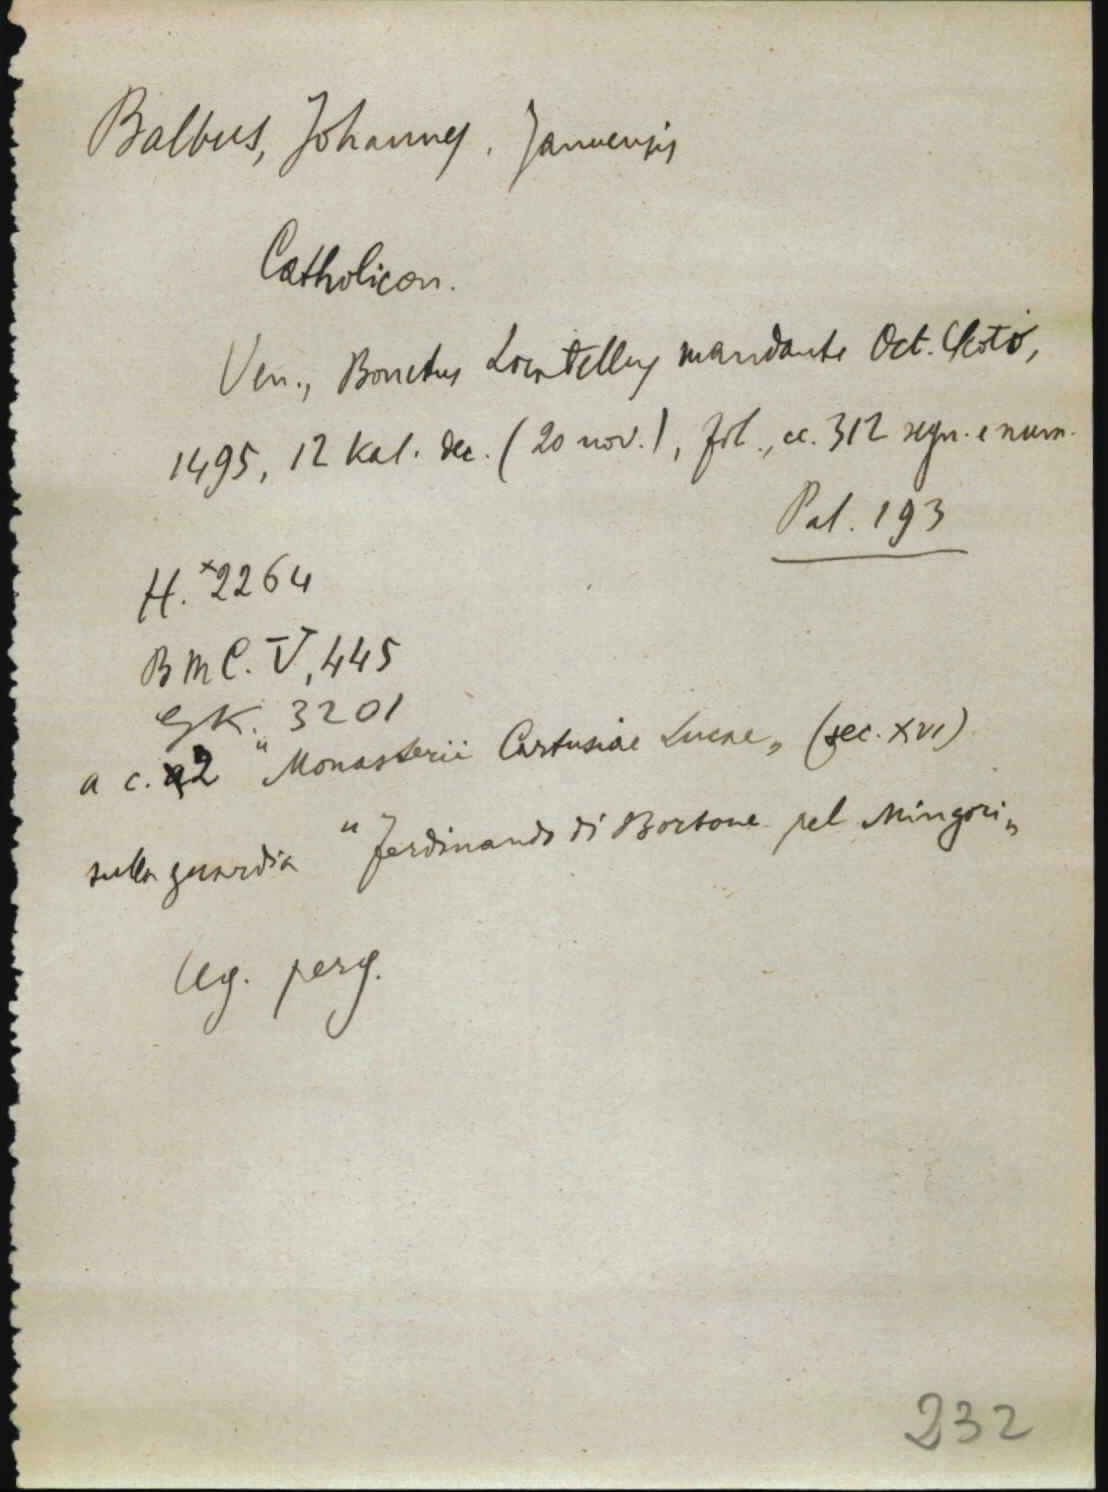 Balbus, Johannes, Januensis
Catholicon.
Ven., Bonetus Locatellus mandante Oct. Scoto,
1495, 12 Kal. dec. (20 nov.), fol., cc. 312 segn. e num.
Pal. 193
H. *2264
BMC. V, 445
GK. 3201
a c. a2 "Monasterii Cartusiae Lucae" (sec. XVI)
sulla guardia "Ferdinando di Borbone pel Mingori"
Leg. perg.
232